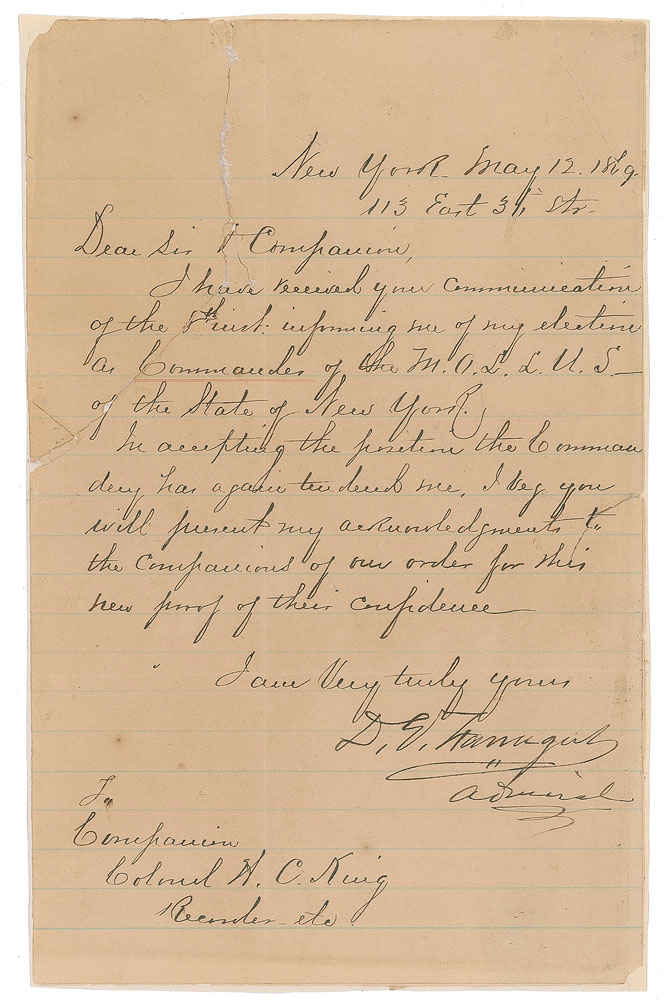 New York May 12. 1869.
113 East 36th Str.
Dear Sir & Companion,
I have received your Communication
of the 8th inst: informing me of my election
as Commander of the M. O. L. L. U. S. —
of the State of New York.
In accepting the position the Comman
dery has again tendered me, I beg you
will present my acknowledgments to
the Companions of our order for this
new proof of their confidence
I am Very truly yours
D. G. Farragut
Admiral
To
Companion
Colonel H. C. King
Recorder etc.